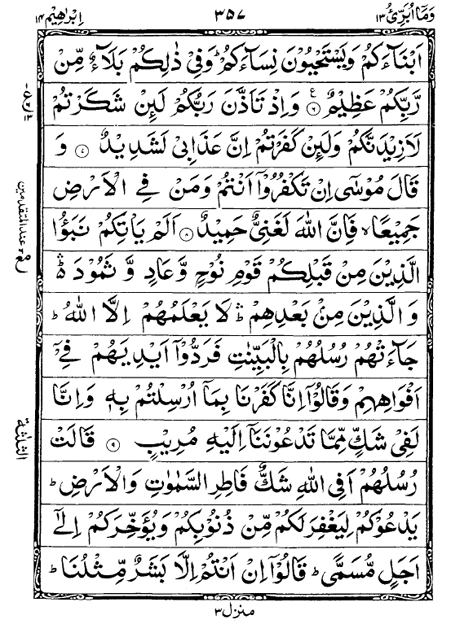 وَمَآ اُبَرِّئُ ١٣ ٣٥٧ اِبْرٰهِيْم ١٤
اَبْنَآءَكُمْ وَيَسْتَحْيُوْنَ نِسَآءَكُمْ ؕ وَفِيْ ذٰلِكُمْ بَلَآءٌ مِّنْ
رَّبِّكُمْ عَظِيْمٌ ۝٦ ع وَاِذْ تَاَذَّنَ رَبُّكُمْ لَئِنْ شَكَرْتُمْ
لَاَزِيْدَنَّكُمْ وَلَئِنْ كَفَرْتُمْ اِنَّ عَذَابِيْ لَشَدِيْدٌ ۝٧ وَ
قَالَ مُوْسٰٓى اِنْ تَكْفُرُوْٓا اَنْتُمْ وَمَنْ فِي الْاَرْضِ
جَمِيْعًا ۙ فَاِنَّ اللّٰهَ لَغَنِيٌّ حَمِيْدٌ ۝٨ اَلَمْ يَاْتِكُمْ نَبَؤُا
الَّذِيْنَ مِنْ قَبْلِكُمْ قَوْمِ نُوْحٍ وَّعَادٍ وَّثَمُوْدَ ۛؕ
وَالَّذِيْنَ مِنْۢ بَعْدِهِمْ ۛؕ لَا يَعْلَمُهُمْ اِلَّا اللّٰهُ ؕ
جَآءَتْهُمْ رُسُلُهُمْ بِالْبَيِّنٰتِ فَرَدُّوْٓا اَيْدِيَهُمْ فِيْٓ
اَفْوَاهِهِمْ وَقَالُوْٓا اِنَّا كَفَرْنَا بِمَآ اُرْسِلْتُمْ بِهٖ وَاِنَّا
لَفِيْ شَكٍّ مِّمَّا تَدْعُوْنَنَآ اِلَيْهِ مُرِيْبٍ ۝٩ قَالَتْ
رُسُلُهُمْ اَفِي اللّٰهِ شَكٌّ فَاطِرِ السَّمٰوٰتِ وَالْاَرْضِ ؕ
يَدْعُوْكُمْ لِيَغْفِرَ لَكُمْ مِّنْ ذُنُوْبِكُمْ وَيُؤَخِّرَكُمْ اِلٰٓى
اَجَلٍ مُّسَمًّى ؕ قَالُوْٓا اِنْ اَنْتُمْ اِلَّا بَشَرٌ مِّثْلُنَا ؕ
منزل ٣
الثلٰثة